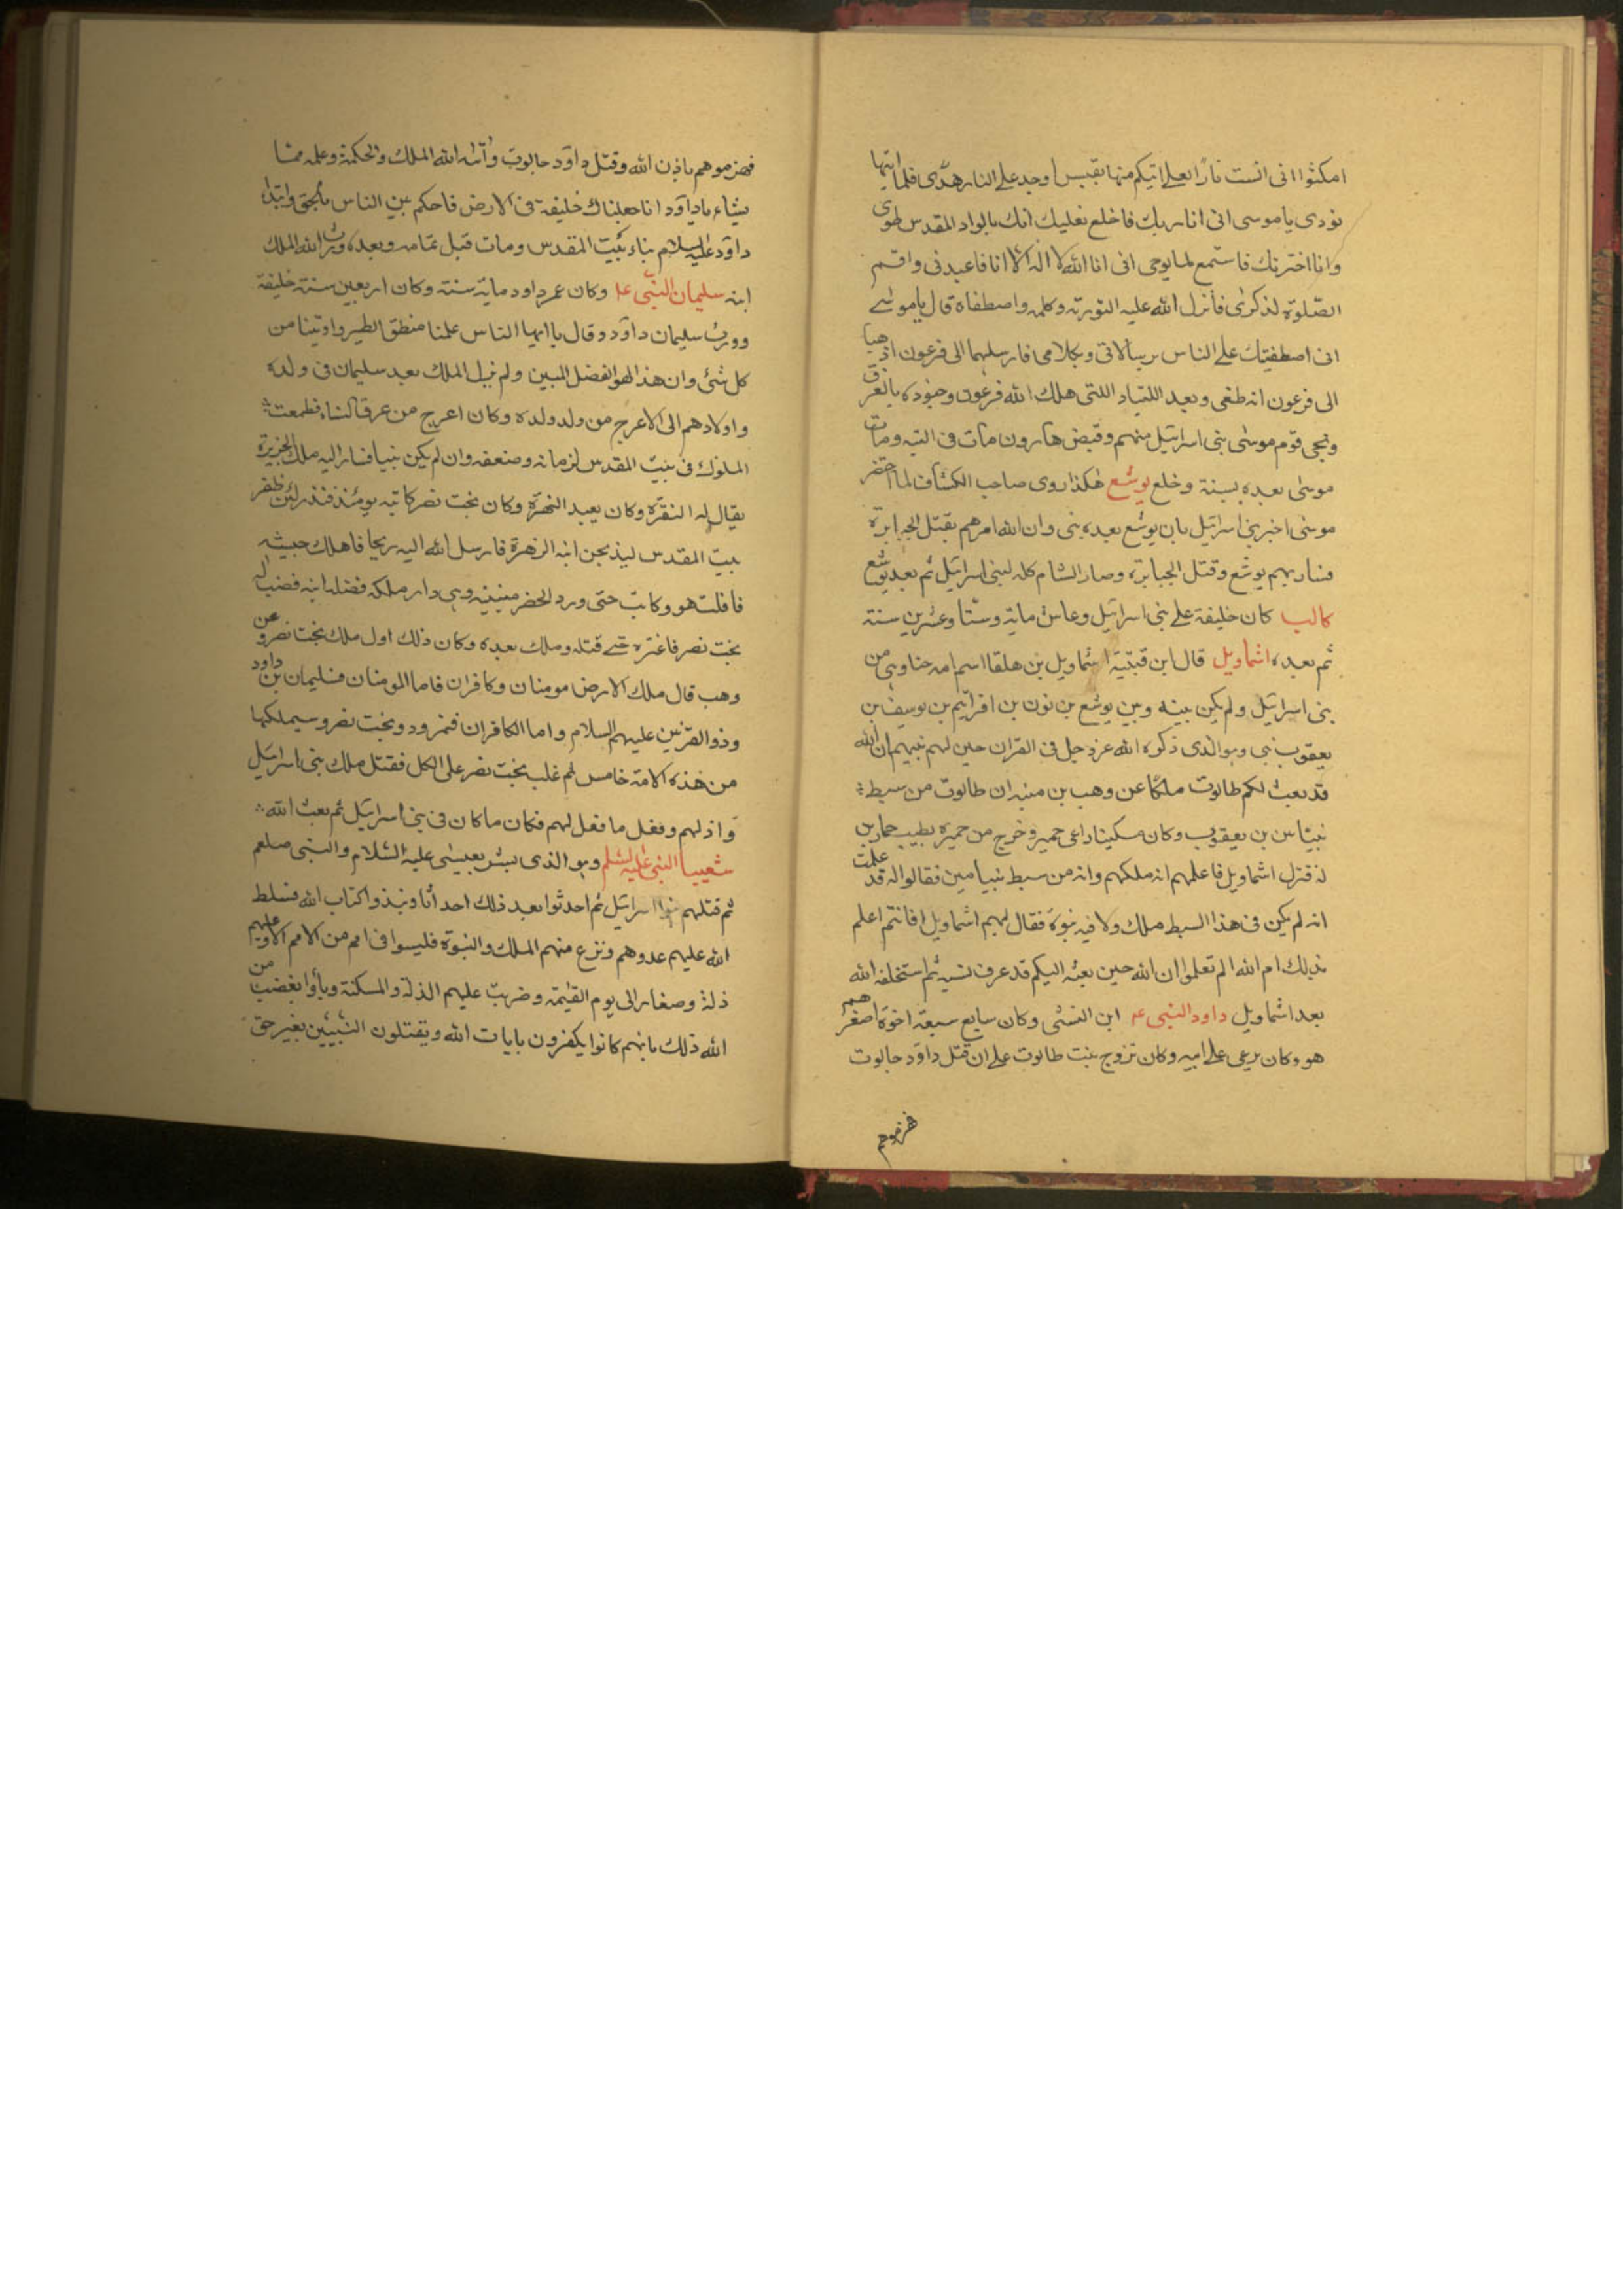 امكثوا انى انست نارًا لعلى اتيكم منها بقبس اوجد على النار هدًى فلما اتيها
نودى يا موسى انى انا ربك فاخلع نعليك انك بالواد المقدس طوى
وانا اخترتك فاستمع لما يوحى انى انا الله لا اله الا انا فاعبدنى واقم
الصّلوة لذكرى فانزل الله عليه التورية وكلمه واصطفاه قال يا موسى
انى اصطفيتك على الناس برسالاتى وبكلامى فارسلهما الى فرعون اذهبا
الى فرعون انه طغى وبعد اللتياء اللتى هلك الله فرعون وجنوده بالغرق
ونجى قوم موسى بنى اسرائيل منهم وقبض هارون مات فى التيه ومات
موسى بعده بسنة وخلع يوشع هكذا روى صاحب الكشاف لما احتضر
موسى اخبر بنى اسرائيل بان يوشع بعده نبى وان الله امرهم بقتل الجبابرة
فسار بهم يوشع وقتل الجبابرة وصار الشام كله لبنى اسرائيل ثم بعد يوشع
كالب كان خليفة على بنى اسرائيل وعاش ماية وستًا وعشرين سنة
ثم بعده اشماويل قال ابن قتيبة اشماويل بن هلقا اسم امه حنا وهى من
بنى اسرائيل ولم يكن بينه وبين يوشع بن نون بن افرائيم بن يوسف بن
يعقوب نبى وهو الذى ذكره الله عز وجل فى القران حين لهم نبيهم ان الله
قد بعث لكم طالوت ملكًا عن وهب بن منبه ان طالوت من سبط
بن يعقوب وكان مسكينا راعى حمير وخرج من حميره يطلب حمارين
له فنزل اشماويل فاعلمهم انه ملكهم وانه من سبط بنيامين فقالوا له قد علمت
انه لم يكن فى هذا السبط ملك ولا فيه نبوة فقال لهم اشماويل افانتم اعلم
بذلك ام الله الم تعلموا ان الله حين بعثه اليكم قد عرف نسبه ثم استخلفه الله
بعد اشماويل داود النبى عم ابن وكان سابع سبعة اخوة اصغرهم
هو وكان يرعى على ابيه وكان تزوج بنت طالوت على ان قتل داود جالوت
فهزموهم
فهزموهم باذن الله وقتل داود جالوت وآتاه الله الملك والحكمة وعلمه مما
يشاء يا داود انا جعلناك خليفة فى الارض فاحكم بين الناس بالحق وابتداء
داود عليه السلام بناء بيت المقدس ومات قبل تمامه وبعده ورث الله الملك
ابنه سليمان النبى ع وكان عمر داود ماية سنة وكان اربعين سنة خليفة
وورث سليمان داود وقال يا ايها الناس علمنا منطق الطير واوتينا من
كل شئ وان هذا لهو الفضل المبين ولم نيل الملك بعد سليمان فى ولده
واولادهم الى الاعرج من ولد ولده وكان اعرج من عرق النساء فطمعت
الملوك فى بيت المقدس لزمانه وضعفه وان لم يكن نبيا فسار اليه ملك الجزيرة
يقال له النقرة وكان يعبد الزهرة وكان بخت نصر كاتبه يومئذ فنذر لئن ظفر
ببيت المقدس ليذبحن ابنه الزهرة فارسل الله اليه ريحا فاهلك جيشه
فافلت هو وكاتب حتى ورد الحضر وهى دار ملكه فقتله ابنه فغضب له
بخت نصر فاغتره حتى قتله وملك بعده وكان ذلك اول ملك بخت نصر وعن
وهب قال ملك الارض مومنان وكافران فاما المومنان فسليمان بن داود
وذو القرنين عليهم السلام واما الكافران فنمرود وبخت نصر وسيملكها
من هذه الامة خامس ثم غلب بخت نصر على الكل فقتل ملك بنى اسرائيل
واذلهم وفعل ما فعل لهم فكان ما كان فى بنى اسرائيل ثم بعث الله
شعيبا النبى عليه السلم وهو الذى بشر بعيسى عليه السلام والنبى صلعم
ثم قتلهم بنوا اسرائيل ثم احدثوا بعد ذلك احداثا ونبذوا كتاب الله فسلط
الله عليهم عدوهم ونزع منهم الملك والنبوة فليسوا فى امم من الامم الا وعليهم
ذلة وصغار الى يوم القيمة وضربت عليهم الذلة والمسكنة وباؤا بغضب من
الله ذلك بانهم كانوا يكفرون بايات الله ويقتلون النبيين بغير حق